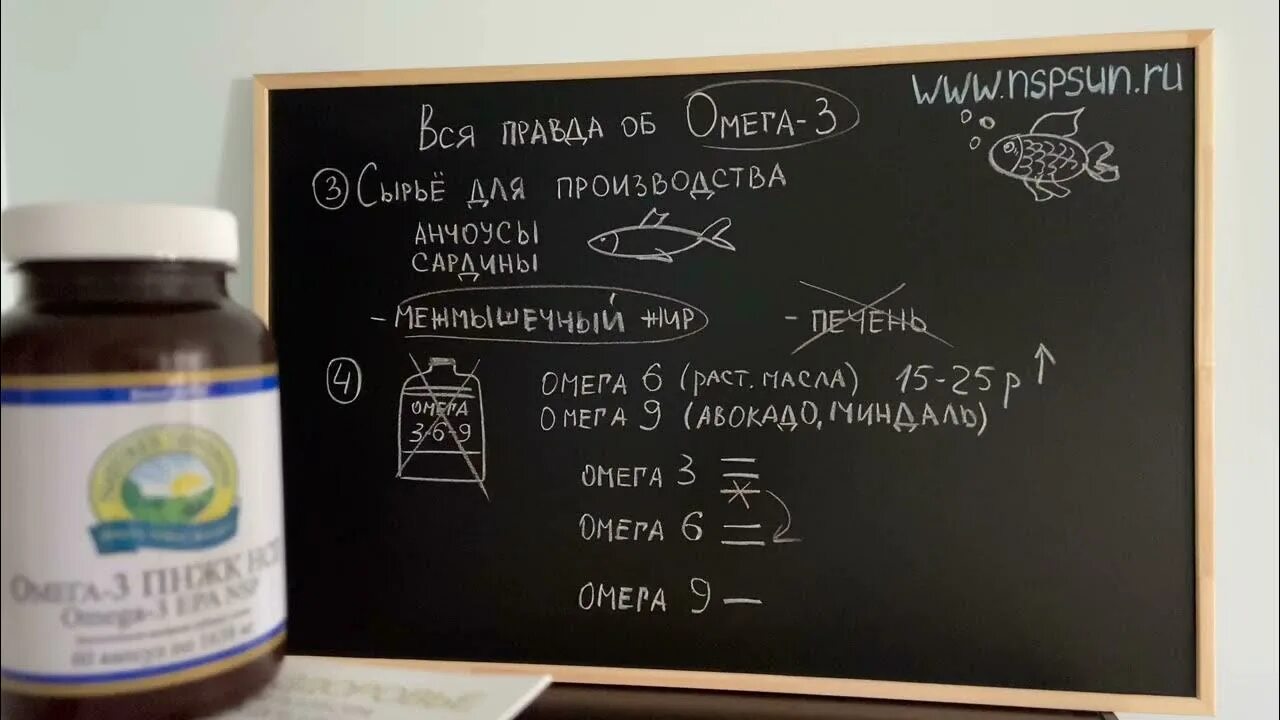 www.nspsun.ru
Вся правда об Омега-3
③ Сырьё для производства
анчоусы
сардины
- межмышечный жир
- печень
④
омега
3-6-9
омега 6 (раст. масла) 15-25 р ↑
омега 9 (авокадо, миндаль)
омега 3
омега 6
омега 9
Омега-3 ПНЖК НСП
Omega-3 EPA NSP
60 капсул по